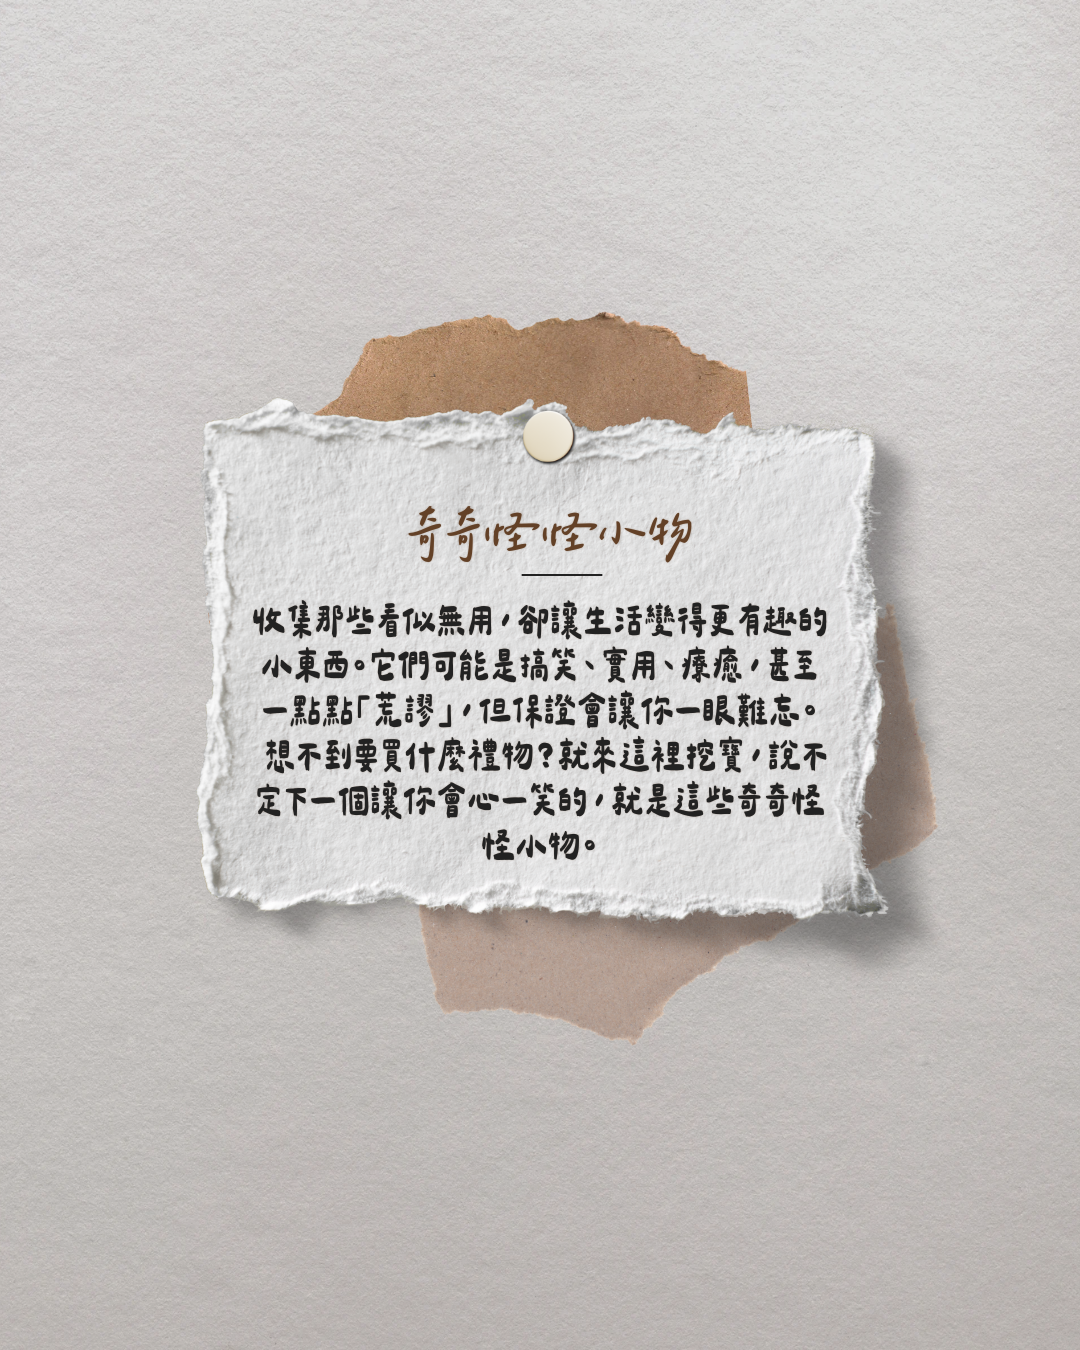 奇奇怪怪小物
收集那些看似無用，卻讓生活變得更有趣的
小東西。它們可能是搞笑、實用、療癒，甚至
一點點「荒謬」，但保證會讓你一眼難忘。
想不到要買什麼禮物？就來這裡挖寶，說不
定下一個讓你會心一笑的，就是這些奇奇怪
怪小物。